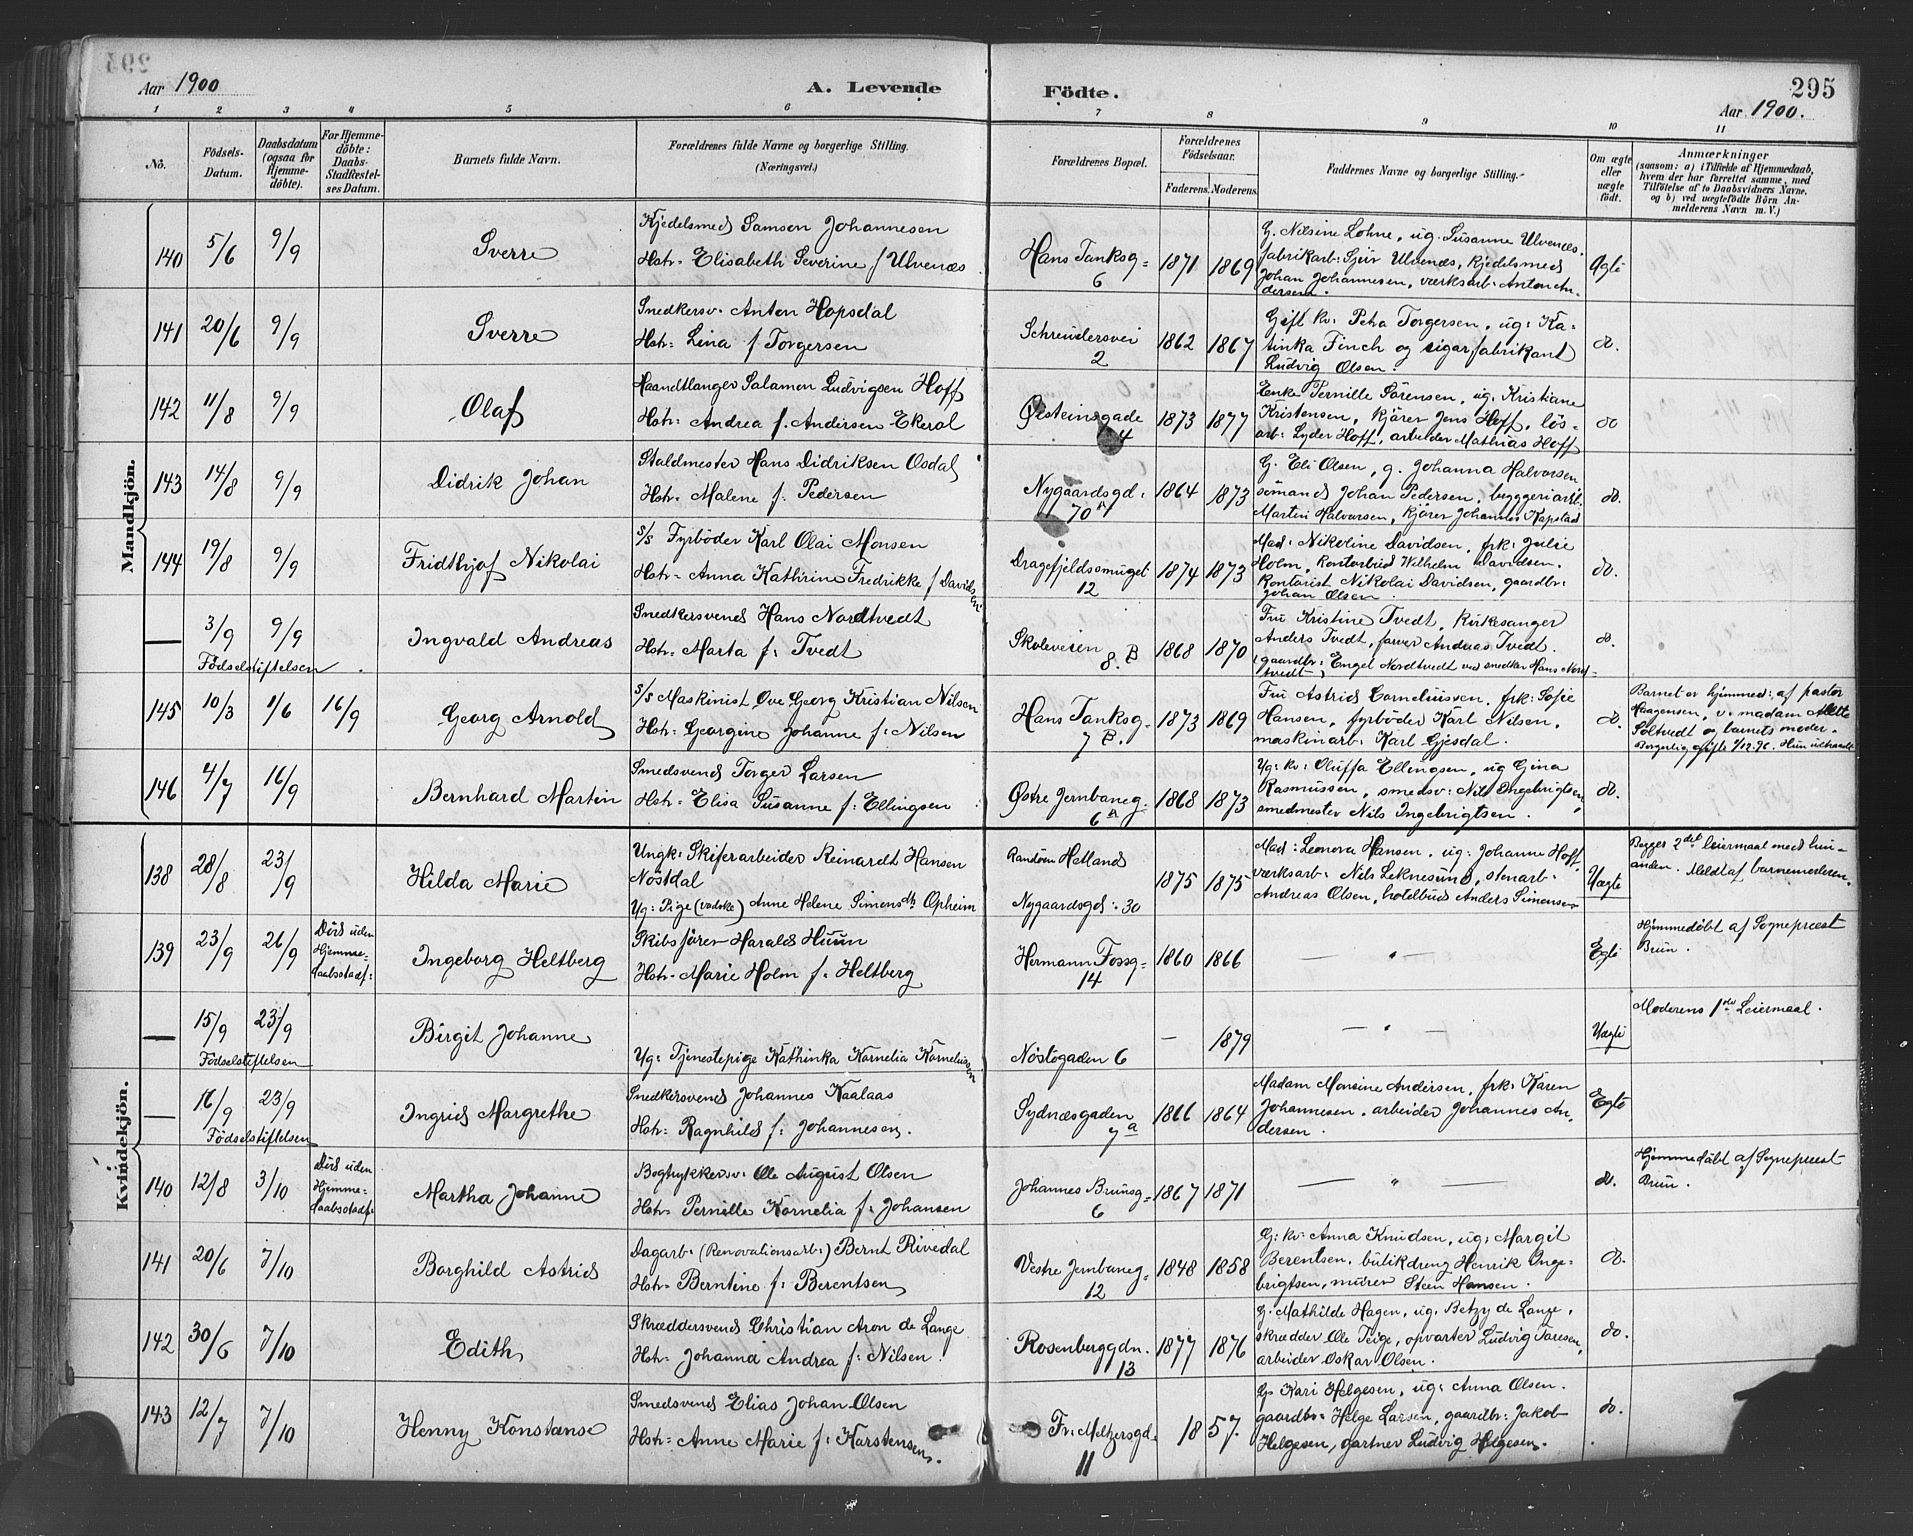 295
Aar 1900
A. Levende
Födte.
Aar 1900.
1 2 3 4 5 6 7 8 9 10 11
No.
Födsels-Datum.
Daabsdatum (ogsaa for Hjemme-döbte).
For Hjemme-döbte: Daabs-Stadfæstel-ses Datum.
Barnets fulde Navn.
Forældrenes fulde Navne og borgerlige Stilling. (Næringsvei.)
Forældrenes Bopæl.
Forældrenes Födselsaar.
Faderens. Moderens.
Faddernes Navne og borgerlige Stilling.
Om ægte eller uægte födt.
Anmærkninger
(saasom: a) i Tilfælde af Hjemmedaab,
hvem der har forrettet samme, med
Tilföielse af to Daabsvidners Navne,
og b) ved uægtefödte Börn An-
melderens Navn m. V.)
Mandkjön.
140 5/6 9/9 Sverre
Kjedelsmed Samson Johannesen
Hstr: Elisabeth Severine f Ulvenæs
Hans Tanksg= 6 1871 1869
G. Nilsine Lohne, ug. Susanne Ulvenæs,
fabrikarb: Sjur Ulvenæs, kjedelsmed
Johan Johannesen, værksarb: Anton An-
dersen.
Ægte
141 20/6 9/9 Sverre
Snedkersv. Anton Hopsdal
Hstr: Lina f. Torgersen
Schreudersvei 2 1862 1867
Gift kv: Petra Torgersen, ug: Ka-
tinka Finch og sigarfabrikant
Ludvig Olsen.
do.
142 11/8 9/9 Olaf
Haandtlanger Salamon Ludvigsen Hoff
Hstr: Andrea f. Andersen Ekerol
Øisteinsgade 4 1873 1877
Enke Pernille Sörensen, ug: Kristiane
Kristensen, kjörer Jens Hoff, lös-
arb: Lyder Hoff, arbeider Mathias Hoff
do
143 14/8 9/9 Didrik Johan
Staldmester Hans Didriksen Osdal
Hstr: Malene f. Pedersen
Nygaardsgd: 70 A 1864 1873
G. Eli Olsen, g. Johanna Halvorsen,
sömand Johan Pedersen, byggeriarb.
Martin Halvorsen, kjörer Johannes Kapstad
do.
144 19/8 9/9 Fridthjof Nikolai
S/S Fyrböder Karl Olai Monsen
Hstr: Anna Kathrine Fredrikke f Davidsen
Dragefjeldssmuget 12 1874 1873
Mad: Nikoline Davidsen, frk: Julie
Holm, Kontorbud Wilhelm Davidsen.
Kontorist Nikolai Davidsen, gaardbr:
Johan Olsen.
do.
— 3/9 9/9 Ingvald Andreas
Födselstiftelsen
Snedkersvend Hans Nordtvedt
Hstr: Marta f: Tvedt
Skoleveien 8. B 1868 1870
Fru Kristine Tvedt, Kirkesanger
Anders Tvedt, farver Andreas Tvedt.
(gaardbr: Engel Nordtvedt ved snedker Hans Nord-
tvedt)
do.
145 10/3 1/6 16/9 Georg Arnold
S/S Maskinist Ove Georg Kristian Nilsen
Hstr: Georgine Johanne f: Nilsen
Hans Tanksg- 7 B. 1873 1869
Fru Astrid Corneliussen, frk: Sofie
Hansen, fyrböder Karl Nilsen,
maskinarb: Karl Gjesdal.
do.
Barnet er hjemmed: af pastor
Haagensen, v. madam Mette
Soltvedt og barnets moder.
Borgerlig gifte 1/12.96. Hun udtraadt
146 4/7 16/9 Bernhard Martin
Smedsvend Torger Larsen
Hstr: Elisa Susanne f: Ellingsen
Østre Jernbaneg- 6 a 1868 1873
Ug: kv: Oluffa Ellingsen, ug Gina
Rasmussen, smedsv: Nils Ingebrigtsen,
smedmester Nils Ingebrigtsen.
do.
Kvindekjön.
138 28/8 23/9 Hilda Marie
Ungk: Skiferarbeider Reinardt Hansen
Nöstdal
Ug: Pige (vadske) Anne Helene Simonsdtr Opheim
Randöen Hetland
Nygaardsgd: 30 1875 1875
Mad: Leonora Hansen, ug: Johanne Hoff,
værksarb: Nils Lekresund, stenarb:
Andreas Olsen, hotelbud Anders Simonsen
Uægte
Begges 2det leiermaal med hin-
anden. Meldt af barnemoderen.
139 23/9 26/9 Död uden Hjemme-daabsstadf: Ingeborg Heltberg
Skibsförer Harald Huun
Hstr: Marie Holm f: Heltberg
Hermann Fossg= 14 1860 1866
— " —
Egte
Hjemmedöbt af Sognepræst
Brun.
— 15/9 23/9 Birgit Johanne
Födselstiftelsen
Ug: Tjenestepige Kathinka Kornelia Korneliussen
Nöstegaden 6 — 1879
— " —
Uægte
Moderens 1ste Leiermaal.
— 16/9 23/9 Ingrid Margrethe
Födselstiftelsen
Snedkersvend Johannes Kaalaas
Hstr: Ragnhild f: Johannesen.
Sydnæsgaden 7 a 1866 1864
Madam Monsine Andersen, frk: Karen
Johannesen, arbeider Johannes An-
dersen.
Egte
140 12/8 3/10 Död uden Hjemme-daabsstadf: Martha Johanne
Bogtrykkersv: Ole August Olsen
Hstr: Pernille Kornelia f: Johansen
Johannes Brunsg= 6 1867 1871
— " —
do.
Hjemmedöbt af Sognepræst
Brun.
141 20/6 7/10 Borghild Astrid
Dagarb: (Renovationsarb:) Bernt Rivedal
Hstr: Berntine f: Berentsen
Vestre Jernbaneg= 12 1848 1858
G: kv: Anna Knudsen, ug: Margit
Berentsen, butikdreng Henrik Inge-
brigtsen, murer Steen Hansen.
do.
142 30/6 7/10 Edith
Skræddersvend Christian Aron de Lange
Hstr: Johanna Andrea f: Nilsen.
Rosenberggdn. 13 1877 1876
G. Mathilde Hagen, ug: Betzy de Lange,
skrædder Ole Teige, opvarter Ludvig Taresen,
arbeider Oskar Olsen.
do.
143 12/7 7/10 Henny Konstanse
Smedsvend Elias Johan Olsen
Hstr: Anne Marie f: Karstensen.
Fr: Meltzersgd= 11 1857.
G. Kari Helgesen, ug: Anna Olsen.
gaardbr: Helge Larsen, gaardbr: Jakob
Helgesen, gartner Ludvig Helgesen.
do.